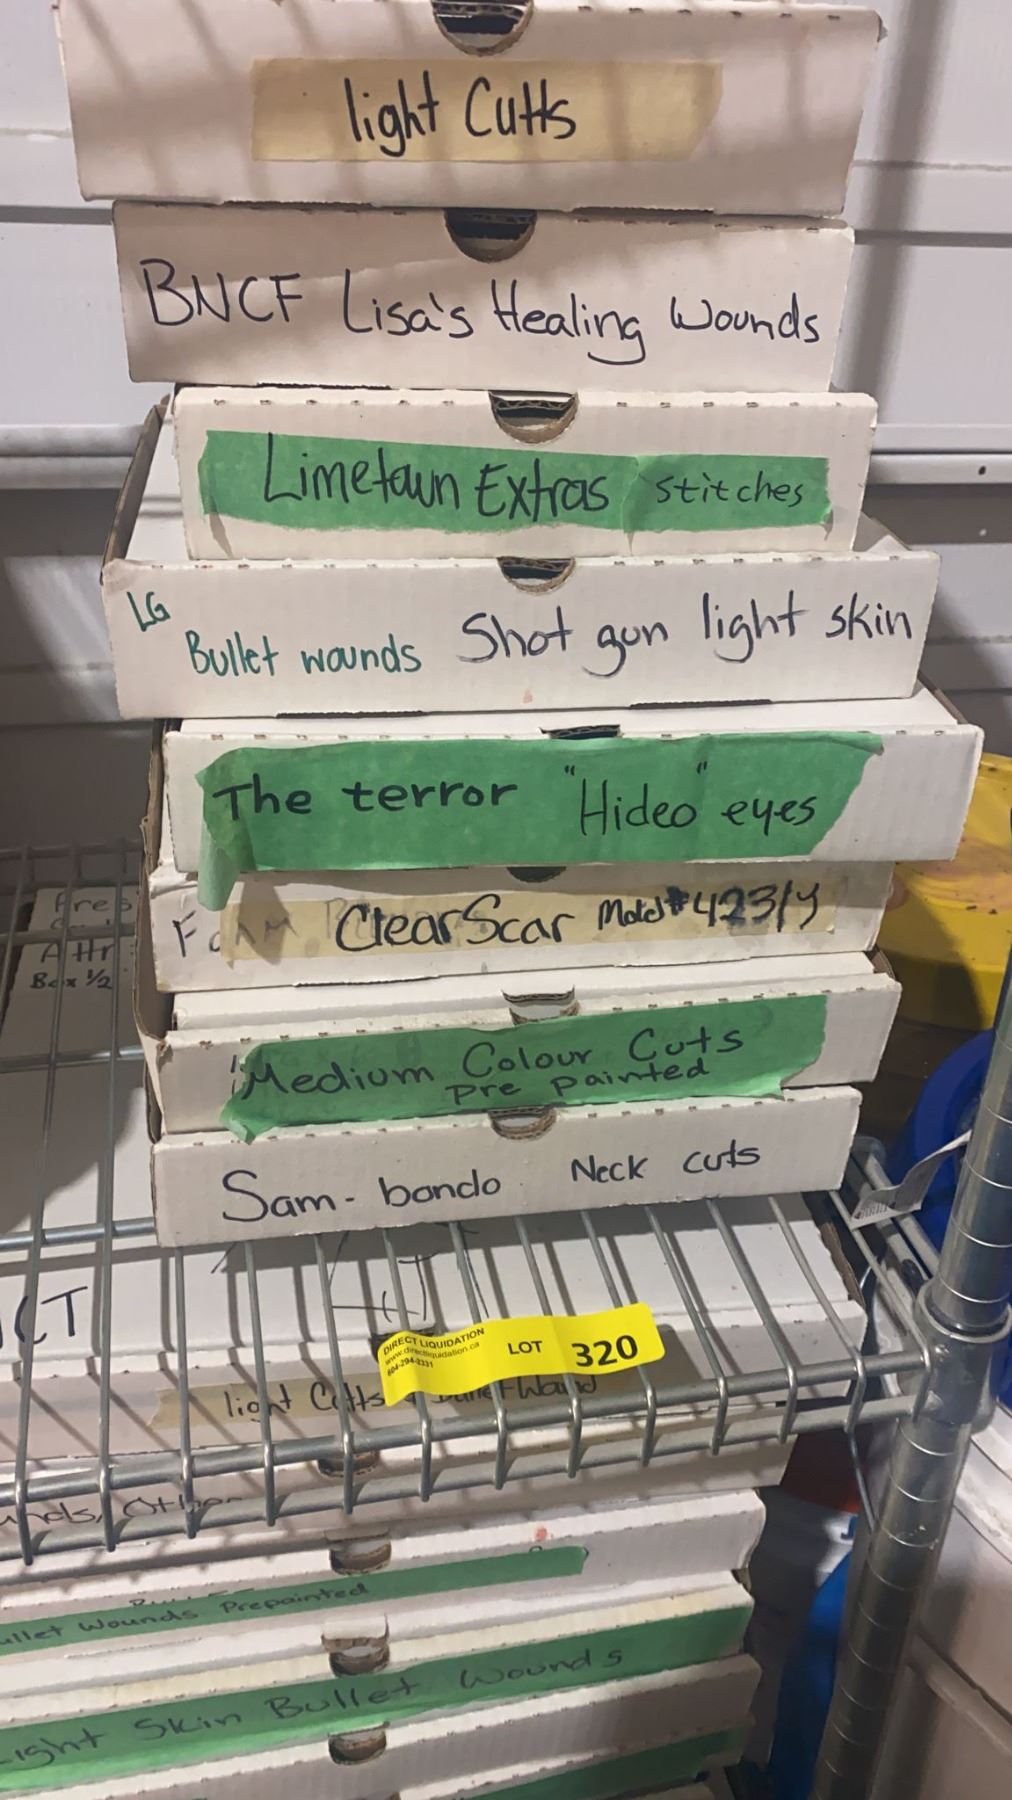 light Cutts
BNCF Lisa's Healing Wounds
Limetown Extras stitches
LG
Bullet wounds Shot gun light skin
The terror "Hideo" eyes
Clear Scar Mold #4231y
Pres
Attr
Box 1/2
Medium Colour Cuts
Pre Painted
Sam-bondo Neck cuts
ICT
DIRECT LIQUIDATION
www.directliquidation.ca
604-294-2331
LOT 320
light Cutts Wound
Other
Wounds Prepainted
Light Skin Bullet Wounds